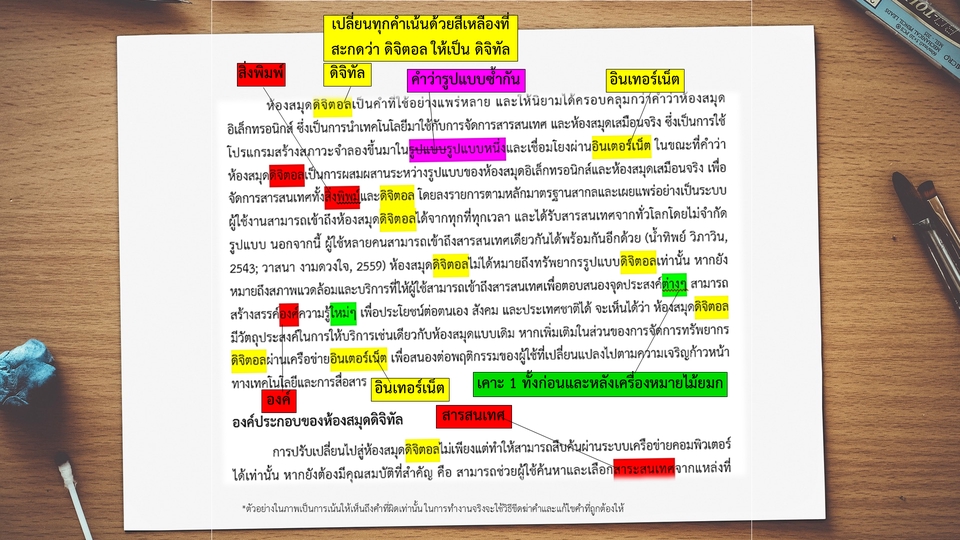 เปลี่ยนทุกคำเน้นด้วยสีเหลืองที่
สะกดว่า ดิจิตอล ให้เป็น ดิจิทัล
สิ่งพิมพ์
ดิจิทัล
คำว่ารูปแบบซ้ำกัน
อินเทอร์เน็ต
ห้องสมุดดิจิตอลเป็นคำที่ใช้อย่างแพร่หลาย และให้นิยามได้ครอบคลุมกว่าคำว่าห้องสมุด
อิเล็กทรอนิกส์ ซึ่งเป็นการนำเทคโนโลยีมาใช้กับการจัดการสารสนเทศ และห้องสมุดเสมือนจริง ซึ่งเป็นการใช้
โปรแกรมสร้างสภาวะจำลองขึ้นมาในรูปแบบรูปแบบหนึ่งและเชื่อมโยงผ่านอินเตอร์เน็ต ในขณะที่คำว่า
ห้องสมุดดิจิตอลเป็นการผสมผสานระหว่างรูปแบบของห้องสมุดอิเล็กทรอนิกส์และห้องสมุดเสมือนจริง เพื่อ
จัดการสารสนเทศทั้งสิงพิพม์และดิจิตอล โดยลงรายการตามหลักมาตรฐานสากลและเผยแพร่อย่างเป็นระบบ
ผู้ใช้งานสามารถเข้าถึงห้องสมุดดิจิตอลได้จากทุกที่ทุกเวลา และได้รับสารสนเทศจากทั่วโลกโดยไม่จำกัด
รูปแบบ นอกจากนี้ ผู้ใช้หลายคนสามารถเข้าถึงสารสนเทศเดียวกันได้พร้อมกันอีกด้วย (น้ำทิพย์ วิภาวิน,
2543; วาสนา งามดวงใจ, 2559) ห้องสมุดดิจิตอลไม่ได้หมายถึงทรัพยากรรูปแบบดิจิตอลเท่านั้น หากยัง
หมายถึงสภาพแวดล้อมและบริการที่ให้ผู้ใช้สามารถเข้าถึงสารสนเทศเพื่อตอบสนองจุดประสงค์ต่างๆ สามารถ
สร้างสรรค์องศ์ความรู้ใหม่ๆ เพื่อประโยชน์ต่อตนเอง สังคม และประเทศชาติได้ จะเห็นได้ว่า ห้องสมุดดิจิตอล
มีวัตถุประสงค์ในการให้บริการเช่นเดียวกับห้องสมุดแบบเดิม หากเพิ่มเติมในส่วนของการจัดการทรัพยากร
ดิจิตอลผ่านเครือข่ายอินเตอร์เน็ต เพื่อสนองต่อพฤติกรรมของผู้ใช้ที่เปลี่ยนแปลงไปตามความเจริญก้าวหน้า
ทางเทคโนโลยีและการสื่อสาร
อินเทอร์เน็ต
เคาะ 1 ทั้งก่อนและหลังเครื่องหมายไม้ยมก
องค์
สารสนเทศ
องค์ประกอบของห้องสมุดดิจิทัล
การปรับเปลี่ยนไปสู่ห้องสมุดดิจิตอลไม่เพียงแต่ทำให้สามารถสืบค้นผ่านระบบเครือข่ายคอมพิวเตอร์
ได้เท่านั้น หากยังต้องมีคุณสมบัติที่สำคัญ คือ สามารถช่วยผู้ใช้ค้นหาและเลือกสาระสนเทศจากแหล่งที่
*ตัวอย่างในภาพเป็นการเน้นให้เห็นถึงคำที่ผิดเท่านั้น ในการทำงานจริงจะใช้วิธีขีดฆ่าคำและแก้ไขคำที่ถูกต้องให้